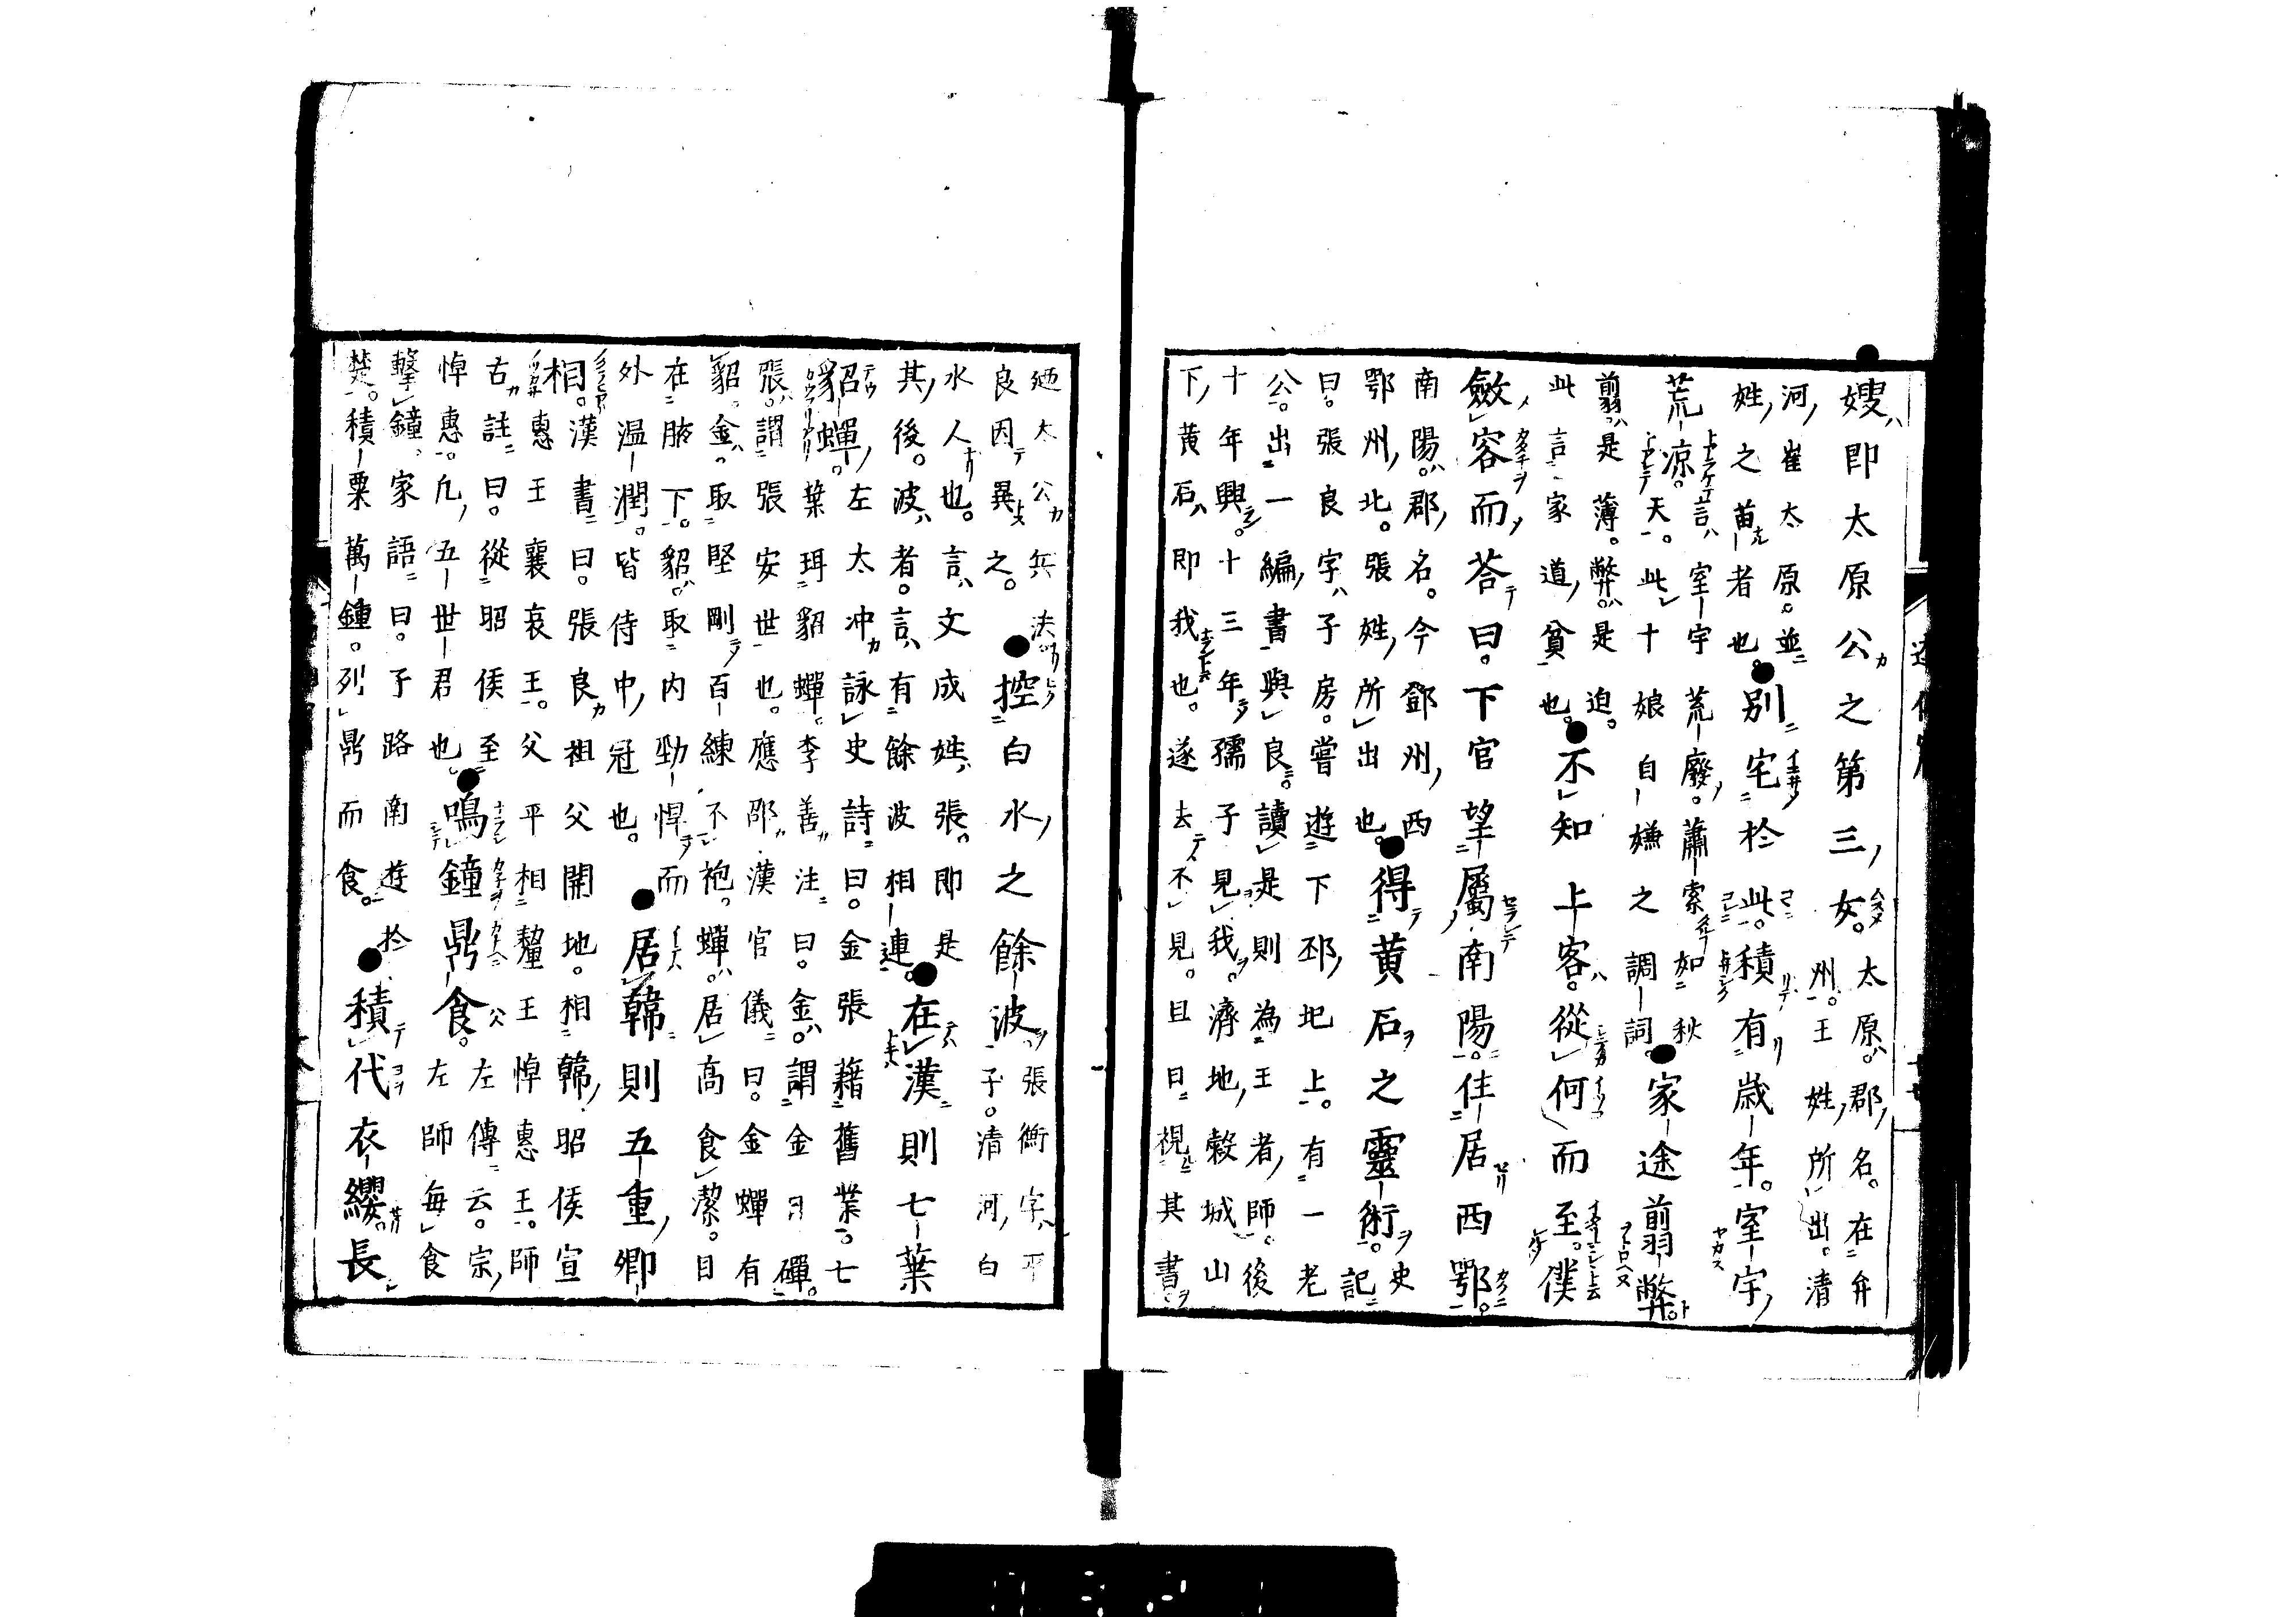 嫂即太原公之第三女。太原。郡名。在并
州。王姓所出。清
河崔太原。並
姓之苗者也。別宅於此。積有歲年。室宇
荒涼。言室宇荒廢。蕭索如秋
天。此十娘自嫌之調詞。家途翦弊。
翦。是薄。弊。是迫。
此言家道貧也。不知上客。從何而至。僕
斂容而荅曰。下官望屬南陽。住居西鄂。
南陽。郡名。今鄧州西
鄂州北。張姓所出也。得黃石之靈術。史
記
曰。張良字子房。嘗遊下邳圯上。有一老
公。出一編書與良。讀是則為王者師。後
十年興。十三年孺子見我。濟地穀城山
下黃石即我也。遂去不見。旦日視其書
廼太公兵法。
良因異之。控白水之餘波。張衡字平
子。清河白
水人也。言文成姓張。即是
其後。波者。言有餘波相連。在漢則七葉
貂蟬。左太冲詠史詩曰。金張藉舊業。七
葉珥貂蟬。李善注曰。金。謂金日磾。
張。謂張安世也。應邵漢官儀曰。金蟬有
貂。金。取堅剛百練不袍。蟬。居高食潔。目
在腋下。貂。取內勁悍而
外溫潤。皆侍中冠也。居韓則五重卿
相。漢書曰。張良祖父開地。相韓昭侯宣
惠王襄哀王。父平相釐王悼惠王。師
古註曰。從昭侯至
悼惠。凡五世君也。鳴鐘鼎食。左傳云。宗
左師每食
擊鐘。家語曰。子路南遊於
楚。積粟萬鍾。列鼎而食。積代衣纓。長